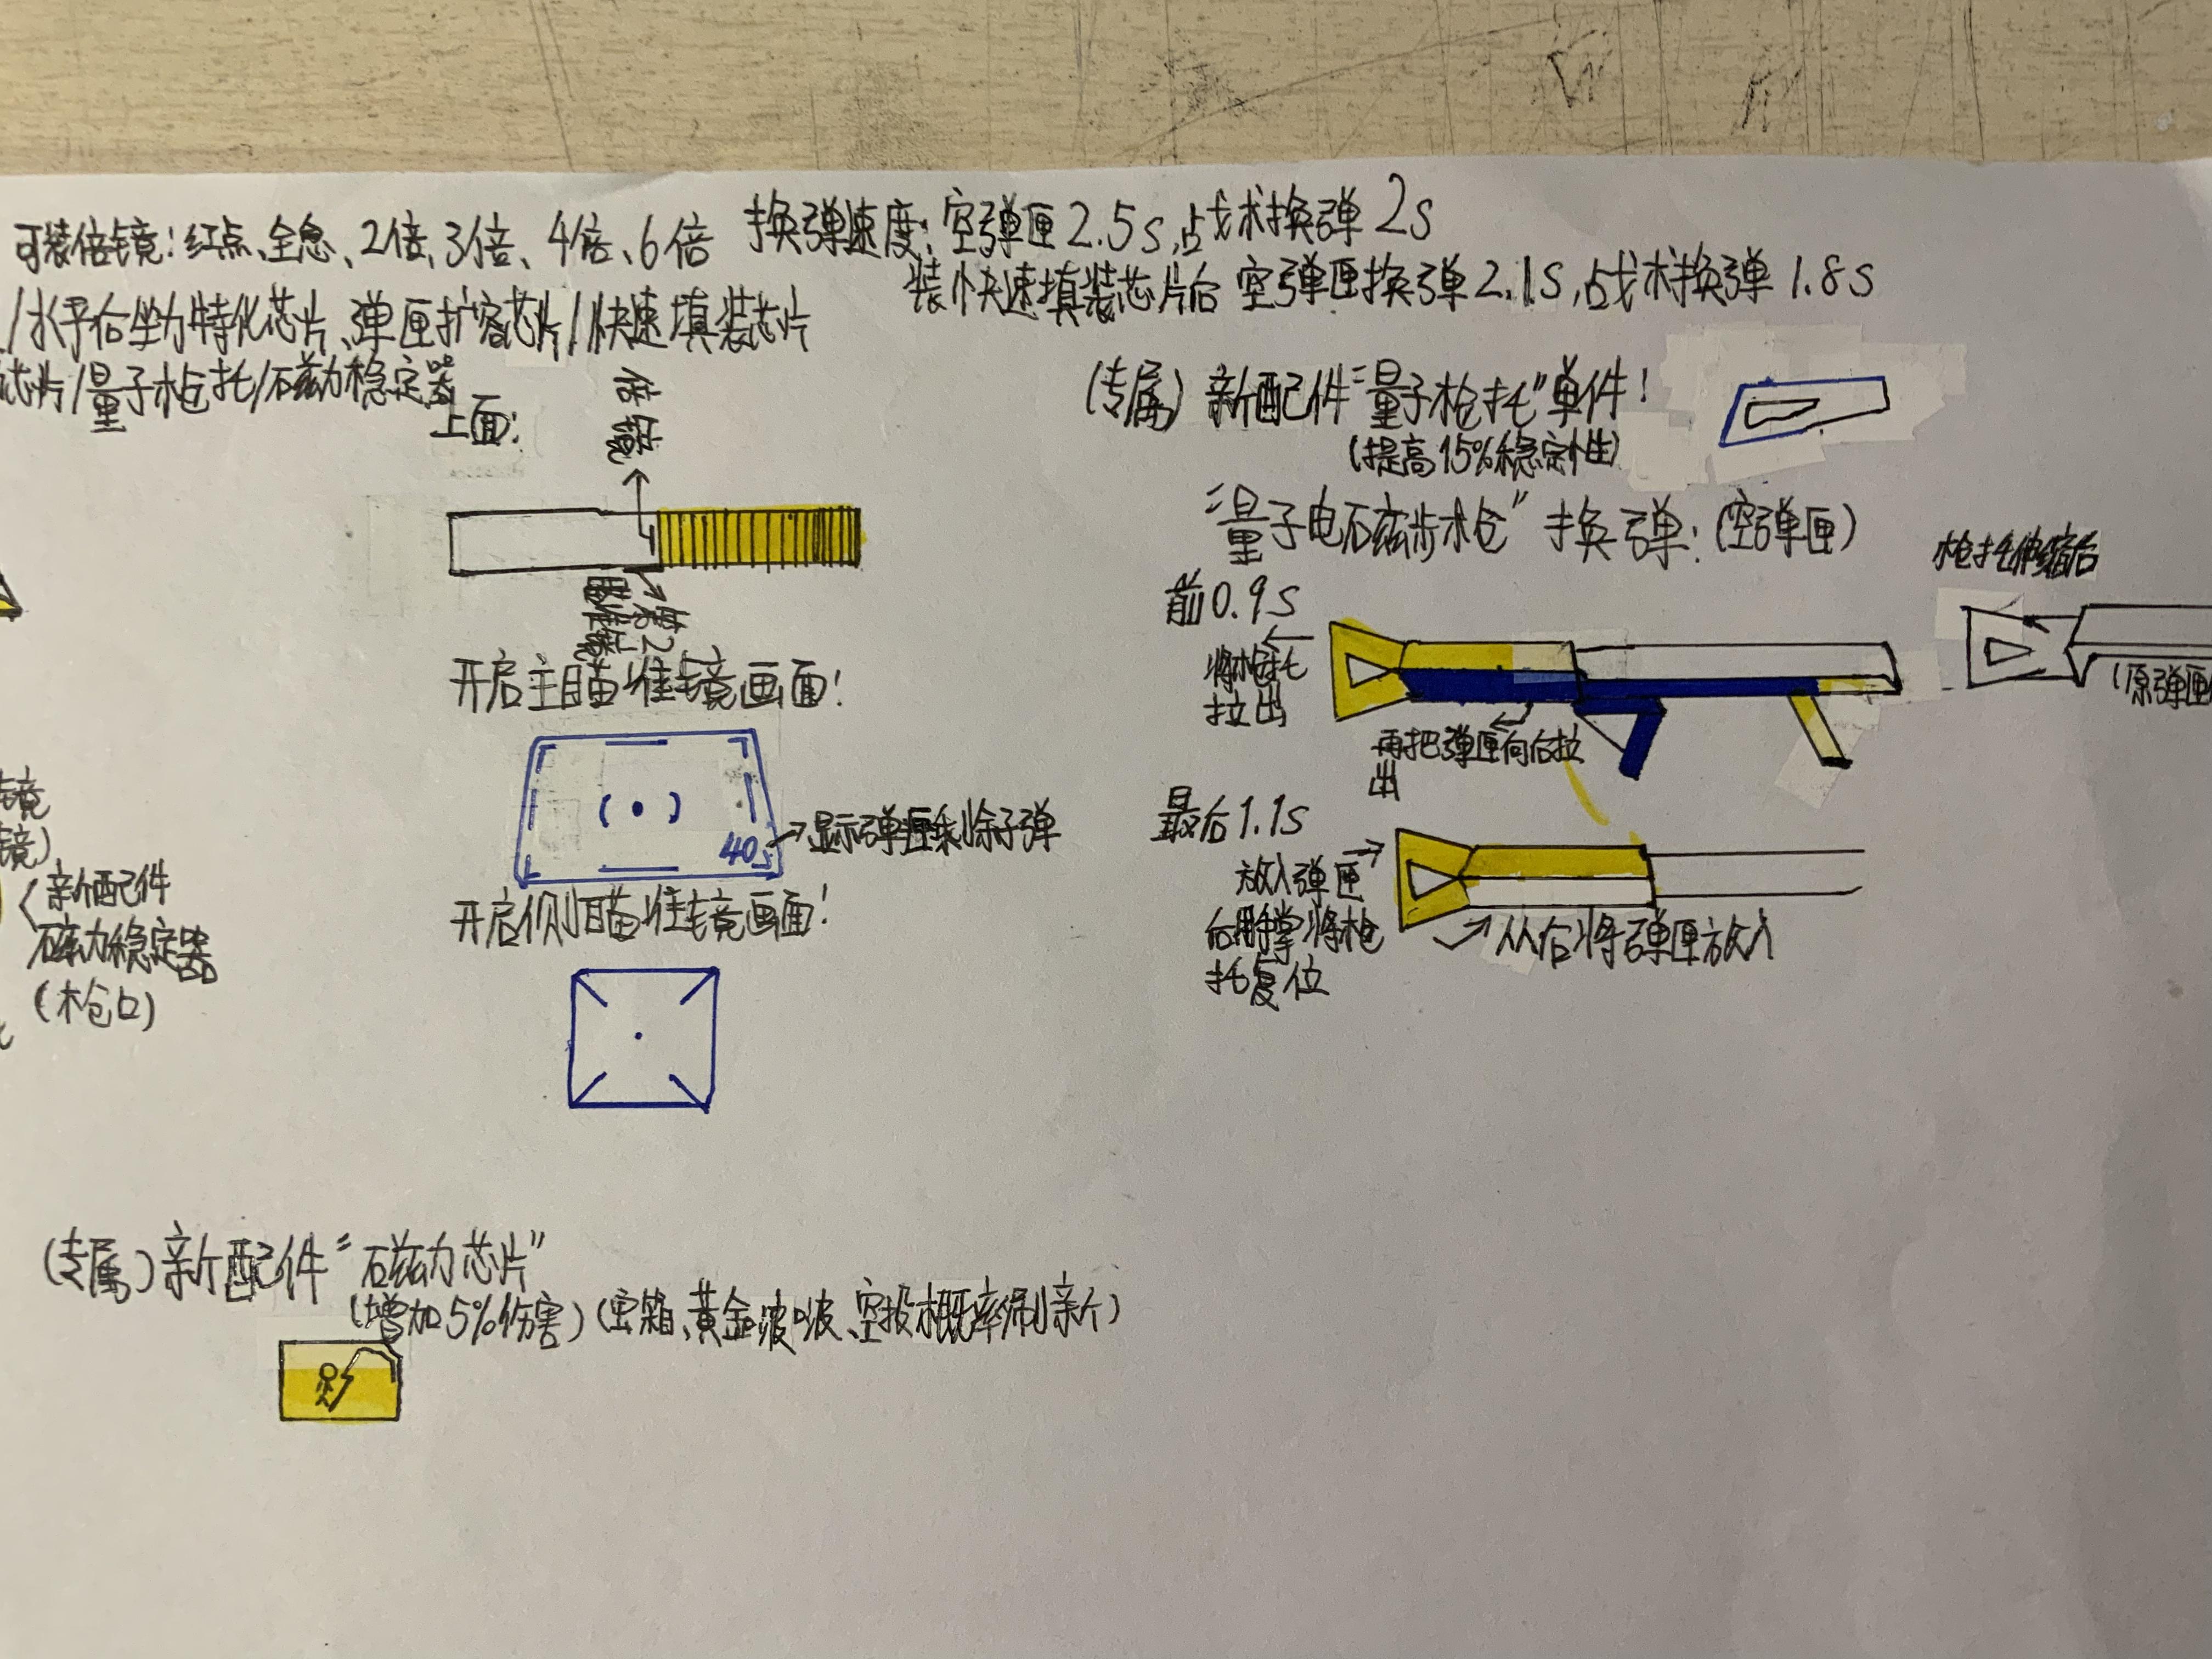 可装倍镜：红点、全息、2倍、3倍、4倍、6倍
换弹速度：空弹匣2.5s，占战术换弹2s
装快速填装芯片后 空弹匣换弹2.1s，战术换弹1.8s
/水平后坐力特化芯片、弹匣扩容芯片/快速填装芯片
芯片/量子枪托/磁力稳定器
上面：
倍镜
(专属)新配件“量子枪托”单件！
(提高15%稳定性)
“量子电磁步枪”换弹：(空弹匣)
枪托伸缩后
(原弹匣
前0.9s
将枪托
拉出
再把弹匣向后拉
出
最后1.1s
放入弹匣
后用手掌将枪
托复位
从后将弹匣放入
开启主瞄准镜画面！
40
显示弹匣剩余子弹
开启侧瞄准镜画面！
镜
镜)
新配件
磁力稳定器
(枪口)
(专属)新配件“磁力芯片”
(增加5%伤害)(密箱、黄金啵啵、空投概率刷新)